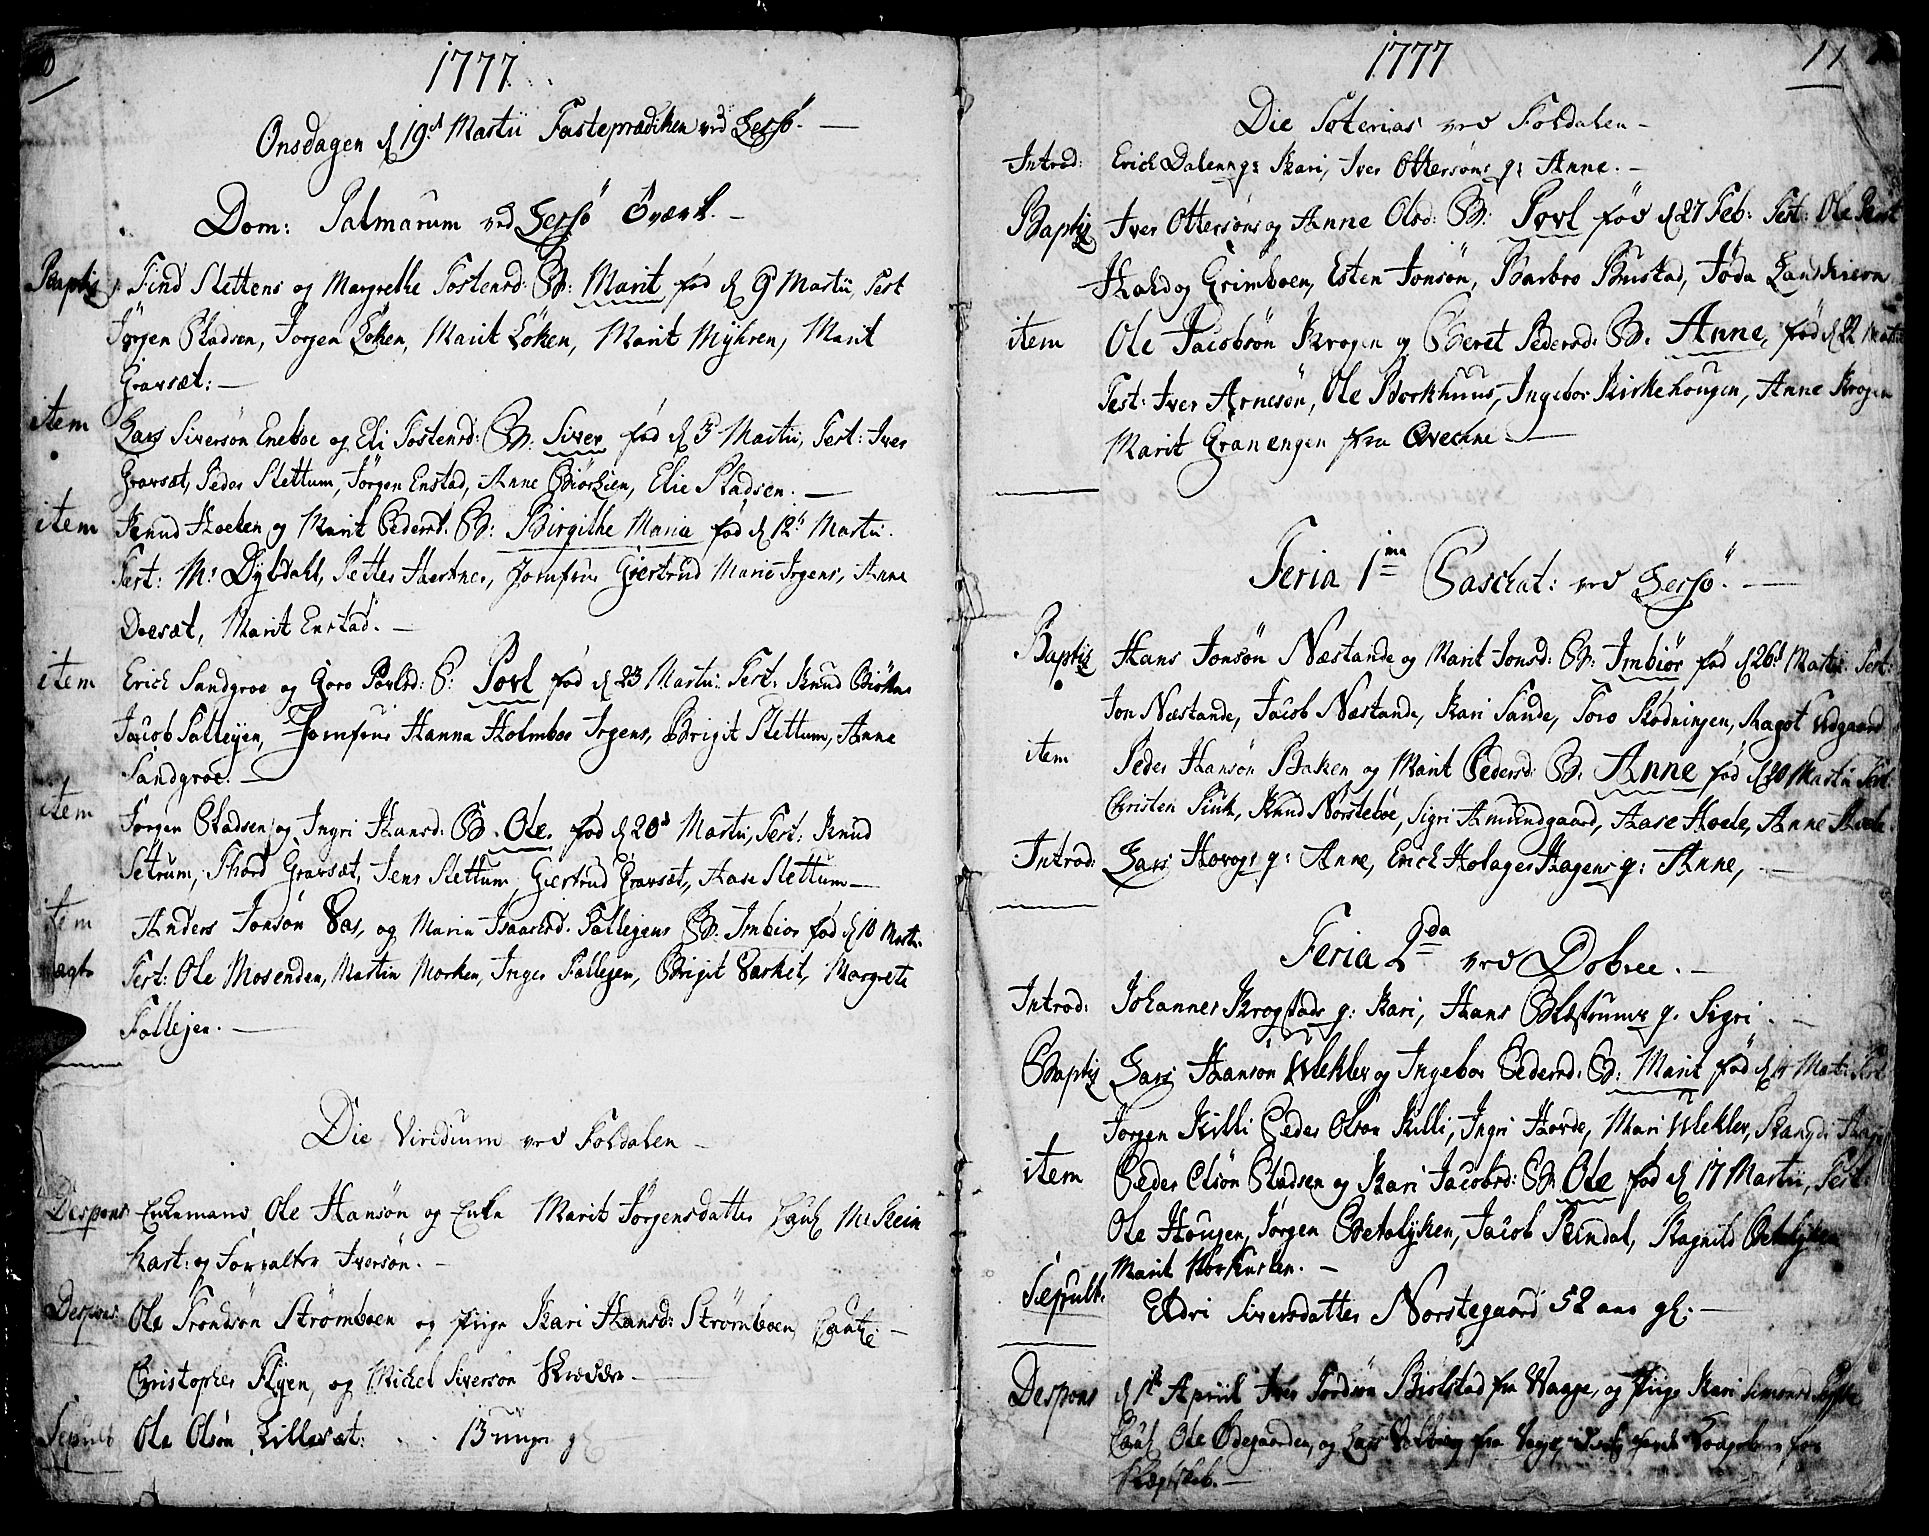 1777
Onsdagen d 19d Martii Fasteprædiken ved Lessø. —
Dom: Palmarum ved Lessø Øverk. —
Baptiz: Find Slettens og Margrethe Tostensd: B: Marit, fød d 9 Martii, Test
Jørgen Pladsen, Jørgen Løken, Marit Løken, Marit Myhren, Marit
Gravsæt: —
item Lars Siversøn Eneboe og Eli Tostensd: B: Siver fød d 5 Martii, Test: Iver
Gravsæt, Peder Slettum, Jørgen Enstad, Anne Biørlien, Elie Pladsen. —
item Knud Hoelen og Marit Pedersd: B: Birgithe Maria fød d 12t Martii.
Test: Mr Dybdahl, Petter Haertner, Jomfrue Giertrud Marie Irgens, Anne
Doesæt, Marit Enstad. —
item Erich Sandgroe og Goro Povlsd: B: Povl fød d 23 Martii. Test: Knud
Jacob Tallejen, Jomfrue Hanna Holmboe Irgens, Brigit Slettum, Anne
Sandgroe. —
item Jørgen Pladsen og Ingri Hansd: B. Ole, fød d 20d Martii, Test: Knud
Setrum, Thord Gravsæt, Jens Slettum, Giertrud Gravsæt, Aase Slettum —
item Anders Jonsøn Aas, og Maria Isaachsd. Tallejens B. Imbior fød d 10 Marti
Test: Ole Mosenden, Martin Morken, Inger Tallejen, Brigit Marete
Tallejen. —
Die Viridium ved Foldalen —
Despons Enkemand, Ole Hansøn og Enke Marit Jørgensdatter Caut Mr Stein
hart: og Forvalter Iversøn. —
Despons: Ole Trondsøn Strømboen og Pige Kari Hansd: Strømboen, Caut: —
Christopher Flyen, og Michel Siversøn —
Sepult Ole Olsøn Lillesæt: 13 uger gl
1777
11
Die Soterias ved Foldalen —
Introd: Erich Dalens q: Kari, Iver Ottersøns q: Anne. —
Baptiz Iver Ottersøns og Anne Olsd: B: Povl fød d 27 Feb: Test: Ole
Haldog Grimboen, Esten Jonsøn, Barbro Bustad, Joda
item Ole Jacobsøn Krogen og Beret Pedersd: B. Anne, fød d 22 Martii
Test: Iver Arnesøn, Ole Borkhuus, Ingebor Kirkehougen, Anne Krogen
Marit Granengen fra Qvechne —
Feria 1ma Paschat: ved Lessø. —
Baptiz Hans Jonsøn Næstande og Marit Jonsd: B: Imbiør fød d 26d Martii Test:
Jon Næstande, Jacob Næstande, Kari Sande, Toro Rødningen, Magot Udgaard
item Peder Hansøn Baken og Marit Pedersd: B. Anne fød d 20 Martii Test:
Christen Siuk, Knud Norsteboe, Sigri Amundgaard, Aase Hoele, Anne Hoele.
Introd: Lars Hovogs q: Anne, Erich Holager Hagens q: Anne, —
Feria 2da ved Dobree. —
Introd: Johannes Krogstads q: Kari, Hans q. Sigri. —
Baptiz Lars Hansøn Klekler og Ingebor Pedersd: B: Marit fød d 14 Mart: Test
Jørgen Killi Peder Olsøn Killi, Ingri Horde, Mari Klekler,
item Peder Olsøn Pladsen og Kari Jacobsd: B. Ole fød d 17 Martii, Test:
Ole Hougen, Jørgen Bretelyken, Jacob Rindal, Ragnild
Marit —
Sepult: Eldri Siversdatter Norstegaard 52 aar gl: —
Despons d 1t Apriil Iver Tordsøn Biølstad fra Waage, og Pige Kari Simensd
Caut Ole Ødegaarden, og Lars fra for
—